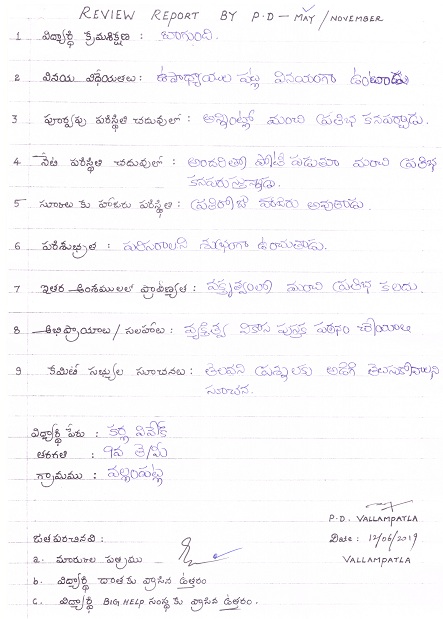 REVIEW REPORT BY P.D - MAY / NOVEMBER
1 విద్యార్థి క్రమశిక్షణ : బాగుంది.
2 వినయ విధేయతలు : ఉపాధ్యాయుల పట్ల వినయంగా ఉంటాడు
3 పూర్వపు పరిస్థితి చదువులో : అన్నింట్లో మంచి ప్రతిభ కనపర్చాడు.
4 నేటి పరిస్థితి చదువులో : అందరితో పోటీ పడుతూ మంచి ప్రతిభ
కనపరుస్తున్నాడు.
5 స్కూలు కు హాజరు పరిస్థితి : ప్రతిరోజు హాజరు అవుతాడు.
6 పరిశుభ్రత : పరిసరాలని శుభ్రంగా ఉంచుతాడు.
7 ఇతర అంశములలో ప్రావీణ్యత : వక్తృత్వంలో మంచి ప్రతిభ కలదు.
8 అభిప్రాయాలు / సలహాలు : వ్యక్తిత్వ వికాస పుస్తక పఠనం చేయాలి
9 కమిటి సభ్యుల సూచనలు : తెలవని ప్రశ్నలకు అడిగి తెలుసుకోవాలని
సూచన.
విద్యార్థి పేరు : కర్ణ వివేక్
తరగతి : 9వ తె/మీ
గ్రామము : వల్లంపట్ల
P.D. VALLAMPATLA
జత పరచినవి : Date : 12/06/2019
a. మార్కుల పత్రము VALLAMPATLA
b. విద్యార్థి దాతకు వ్రాసిన ఉత్తరం
c. విద్యార్థి BIG HELP సంస్థకు వ్రాసిన ఉత్తరం.